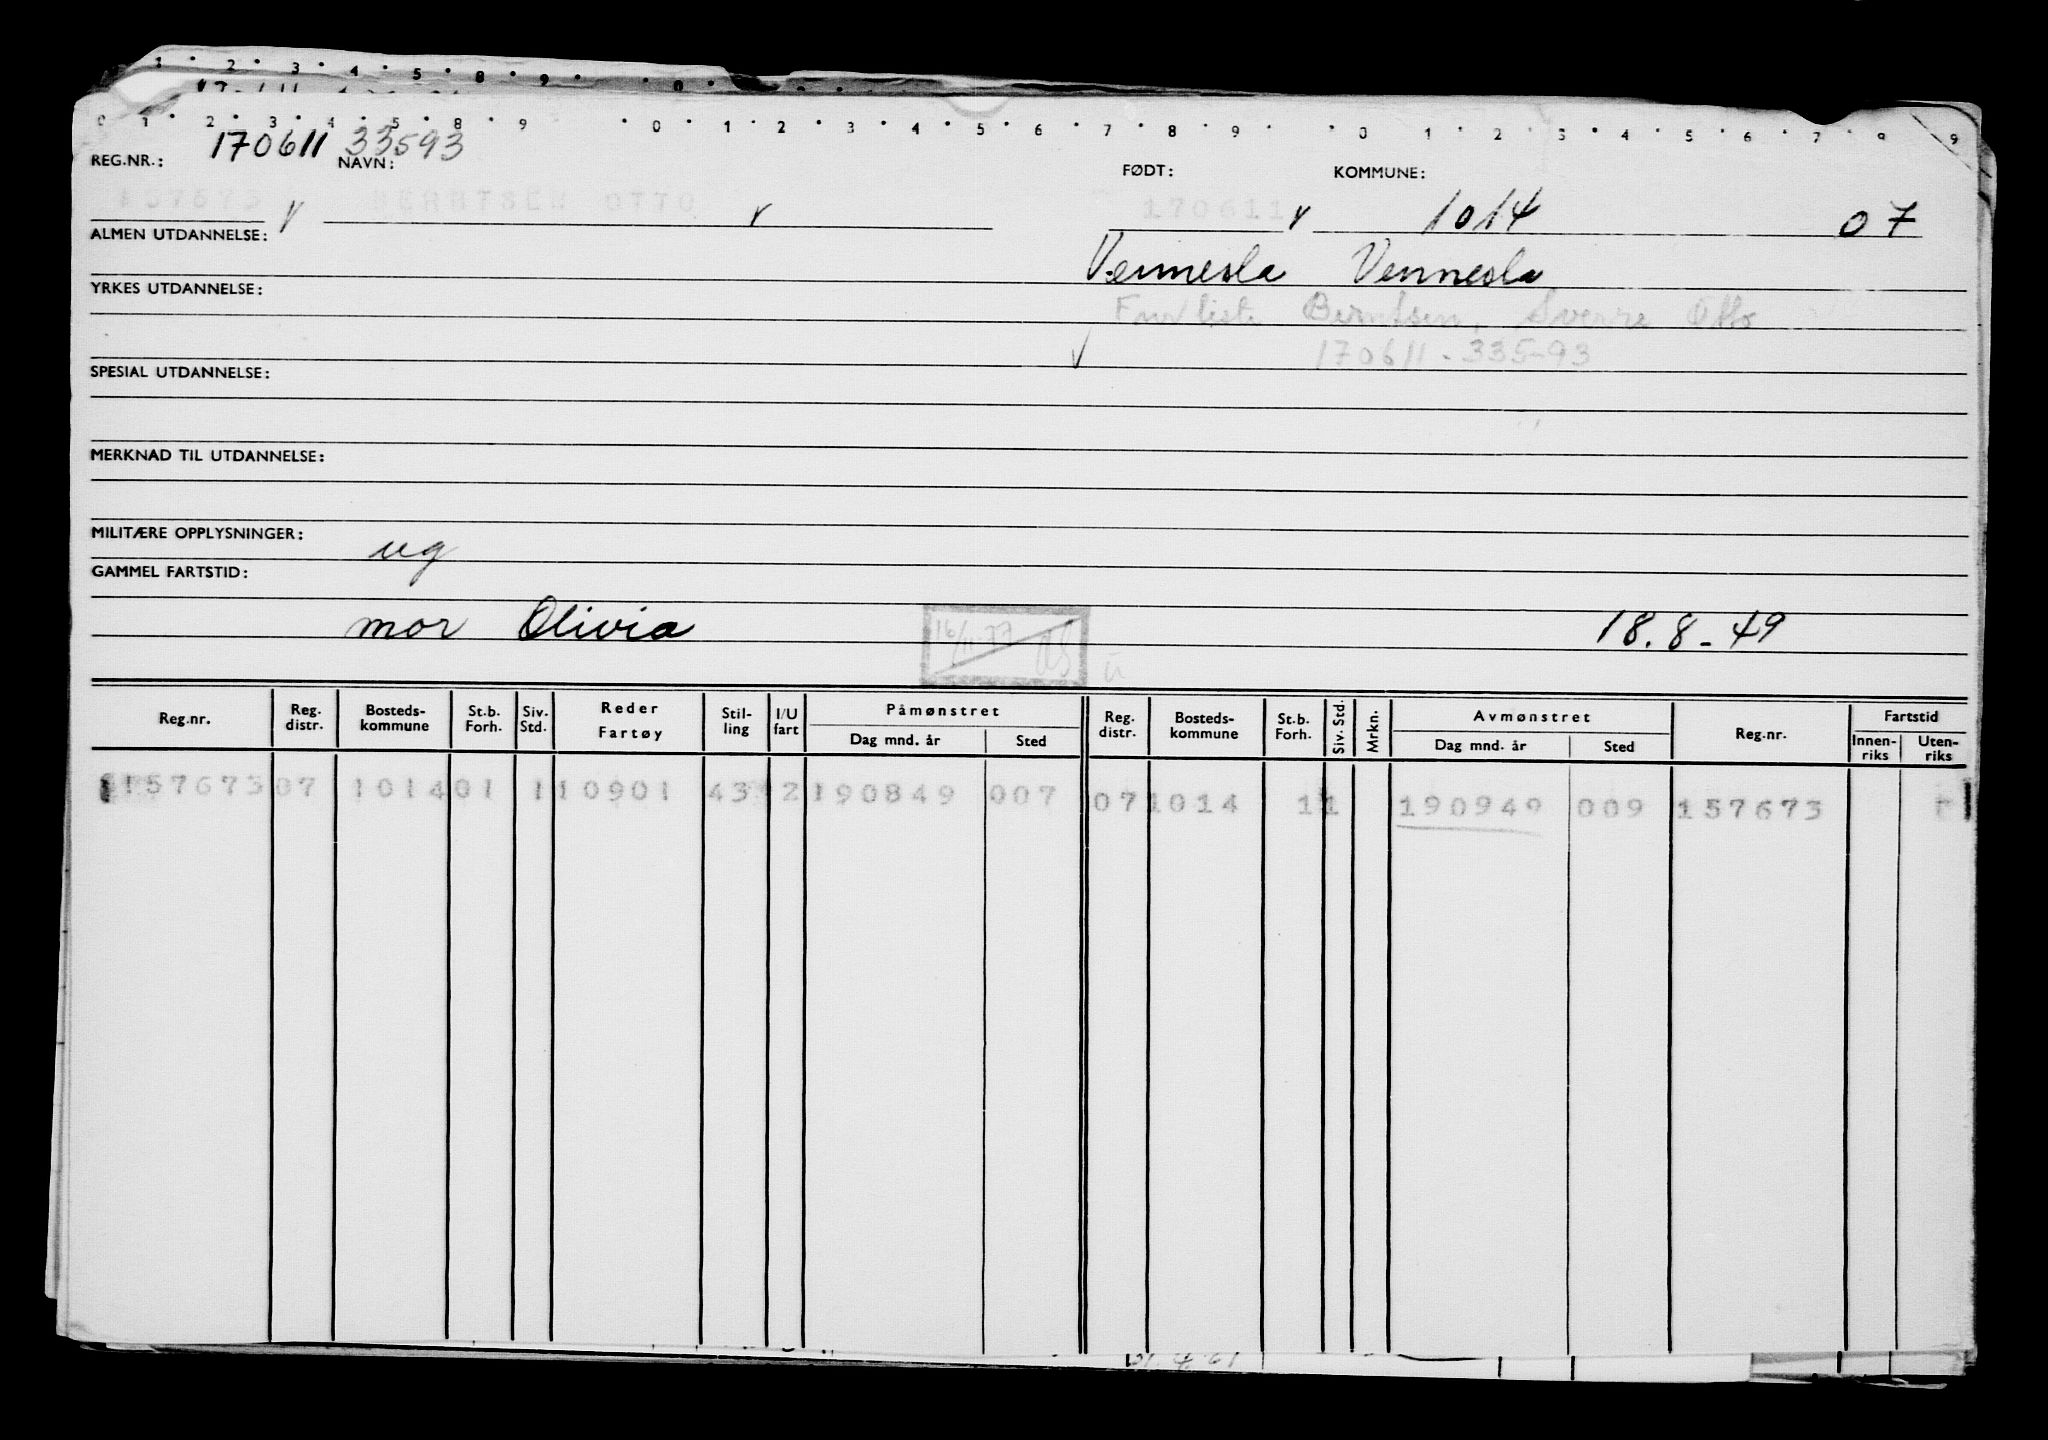 1 2 3 4 5 8 9 0
0 1 2 3 4 5 8 9 0 1 2 3 4 5 6 7 8 9 0 1 2 3 4 5 6 7 9 9
REG.NR.: 170611 33593 NAVN: FØDT: KOMMUNE:
157673 BERNTSEN OTTO 170611 1014 07
ALMEN UTDANNELSE:
Vennesla Vennesla
YRKES UTDANNELSE:
Berntsen, Sverre Otto
170611-335-93
SPESIAL UTDANNELSE:
MERKNAD TIL UTDANNELSE:
MILITÆRE OPPLYSNINGER: ug
GAMMEL FARTSTID:
mor Olivia 18.8-49
Reg.nr. Reg. distr. Bosteds-kommune St.b. Forh. Siv. Std. Reder Fartøy Stil-ling I/U fart Påmønstret Dag mnd. år Sted Reg. distr. Bosteds-kommune St.b. Forh. Siv. Std. Mrkn. Avmønstret Dag mnd. år Sted Reg.nr. Fartstid Innen-riks Uten-riks
157673 07 1014 01 1 10901 43 2 190849 007 07 1014 1 1 190949 009 157673